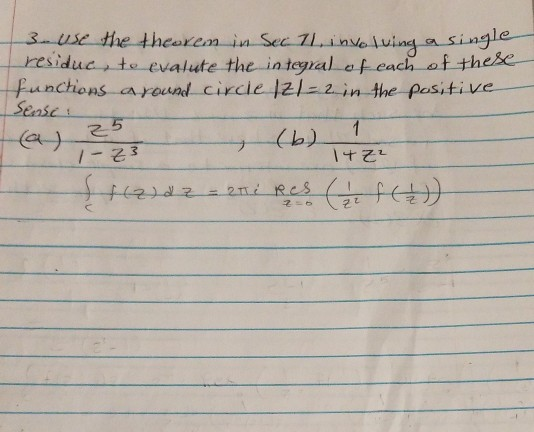 3- use the theorem in Sec 71, involving a single
residue, to evalute the integral of each of these
functions around circle |z| = 2 in the positive
Sense:
(a) z^5 / (1 - z^3) , (b) 1 / (1 + z^2)
∫_C f(z) dz = 2πi Res_{z=0} (1/z^2 f(1/z))